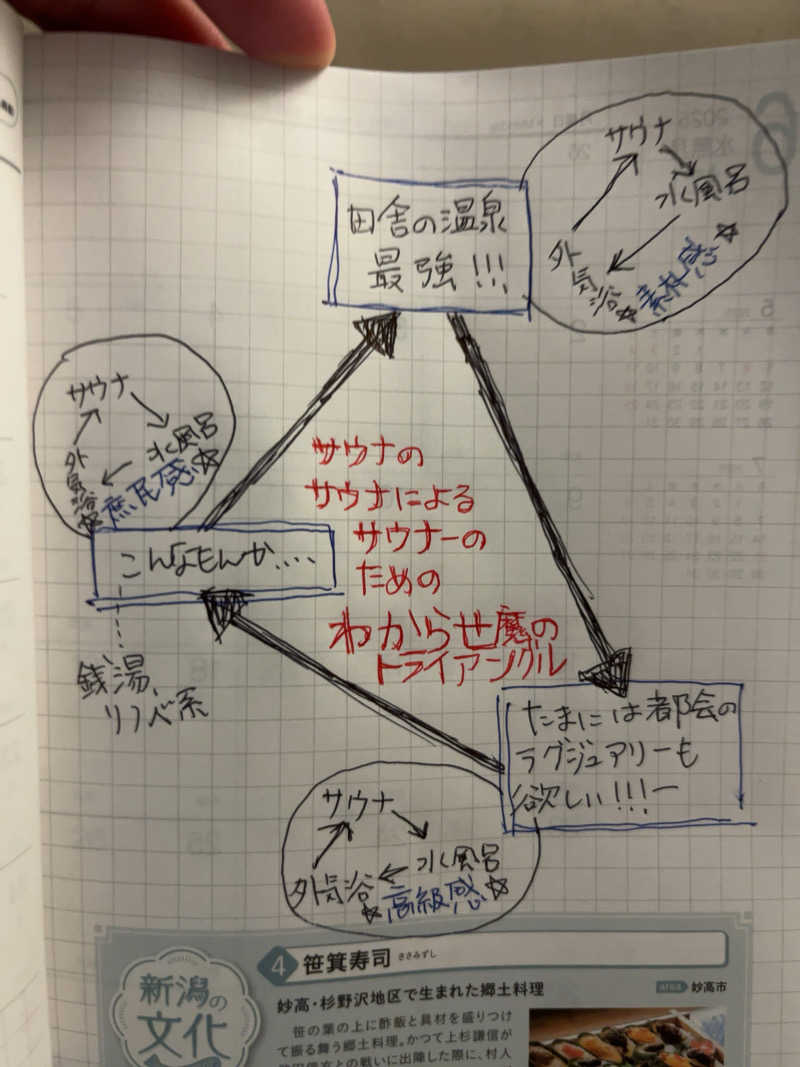 サウナ
水風呂
外気浴
☆素材感☆
田舎の温泉
最強!!!
サウナ
水風呂
外気浴
☆庶民感☆
サウナの
サウナによる
サウナーの
ための
わからせ魔の
トライアングル
こんなもんか....
銭湯、
リノベ系
たまには都会の
ラグジュアリーも
欲しい!!!ー
サウナ
水風呂
外気浴
☆高級感☆
新潟の
文化
4 笹箕寿司 ささみずし
妙高・杉野沢地区で生まれた郷土料理
AREA 妙高市
笹の葉の上に酢飯と具材を盛りつけ
て振る舞う郷土料理。かつて上杉謙信が